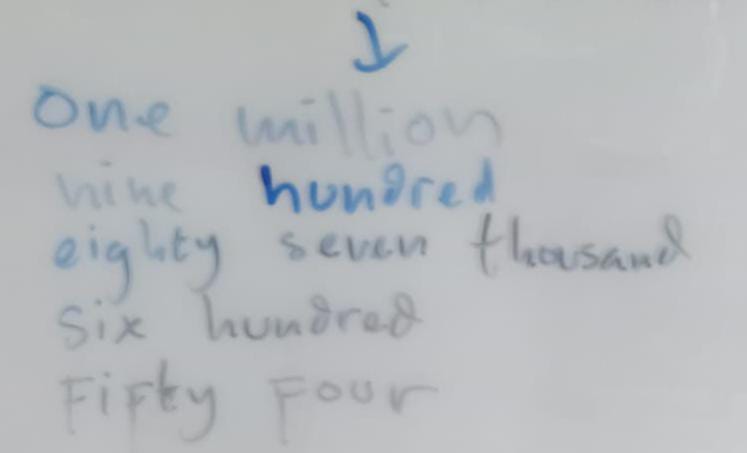 One million
nine hundred
eighty seven thousand
six hundred
Fifty Four